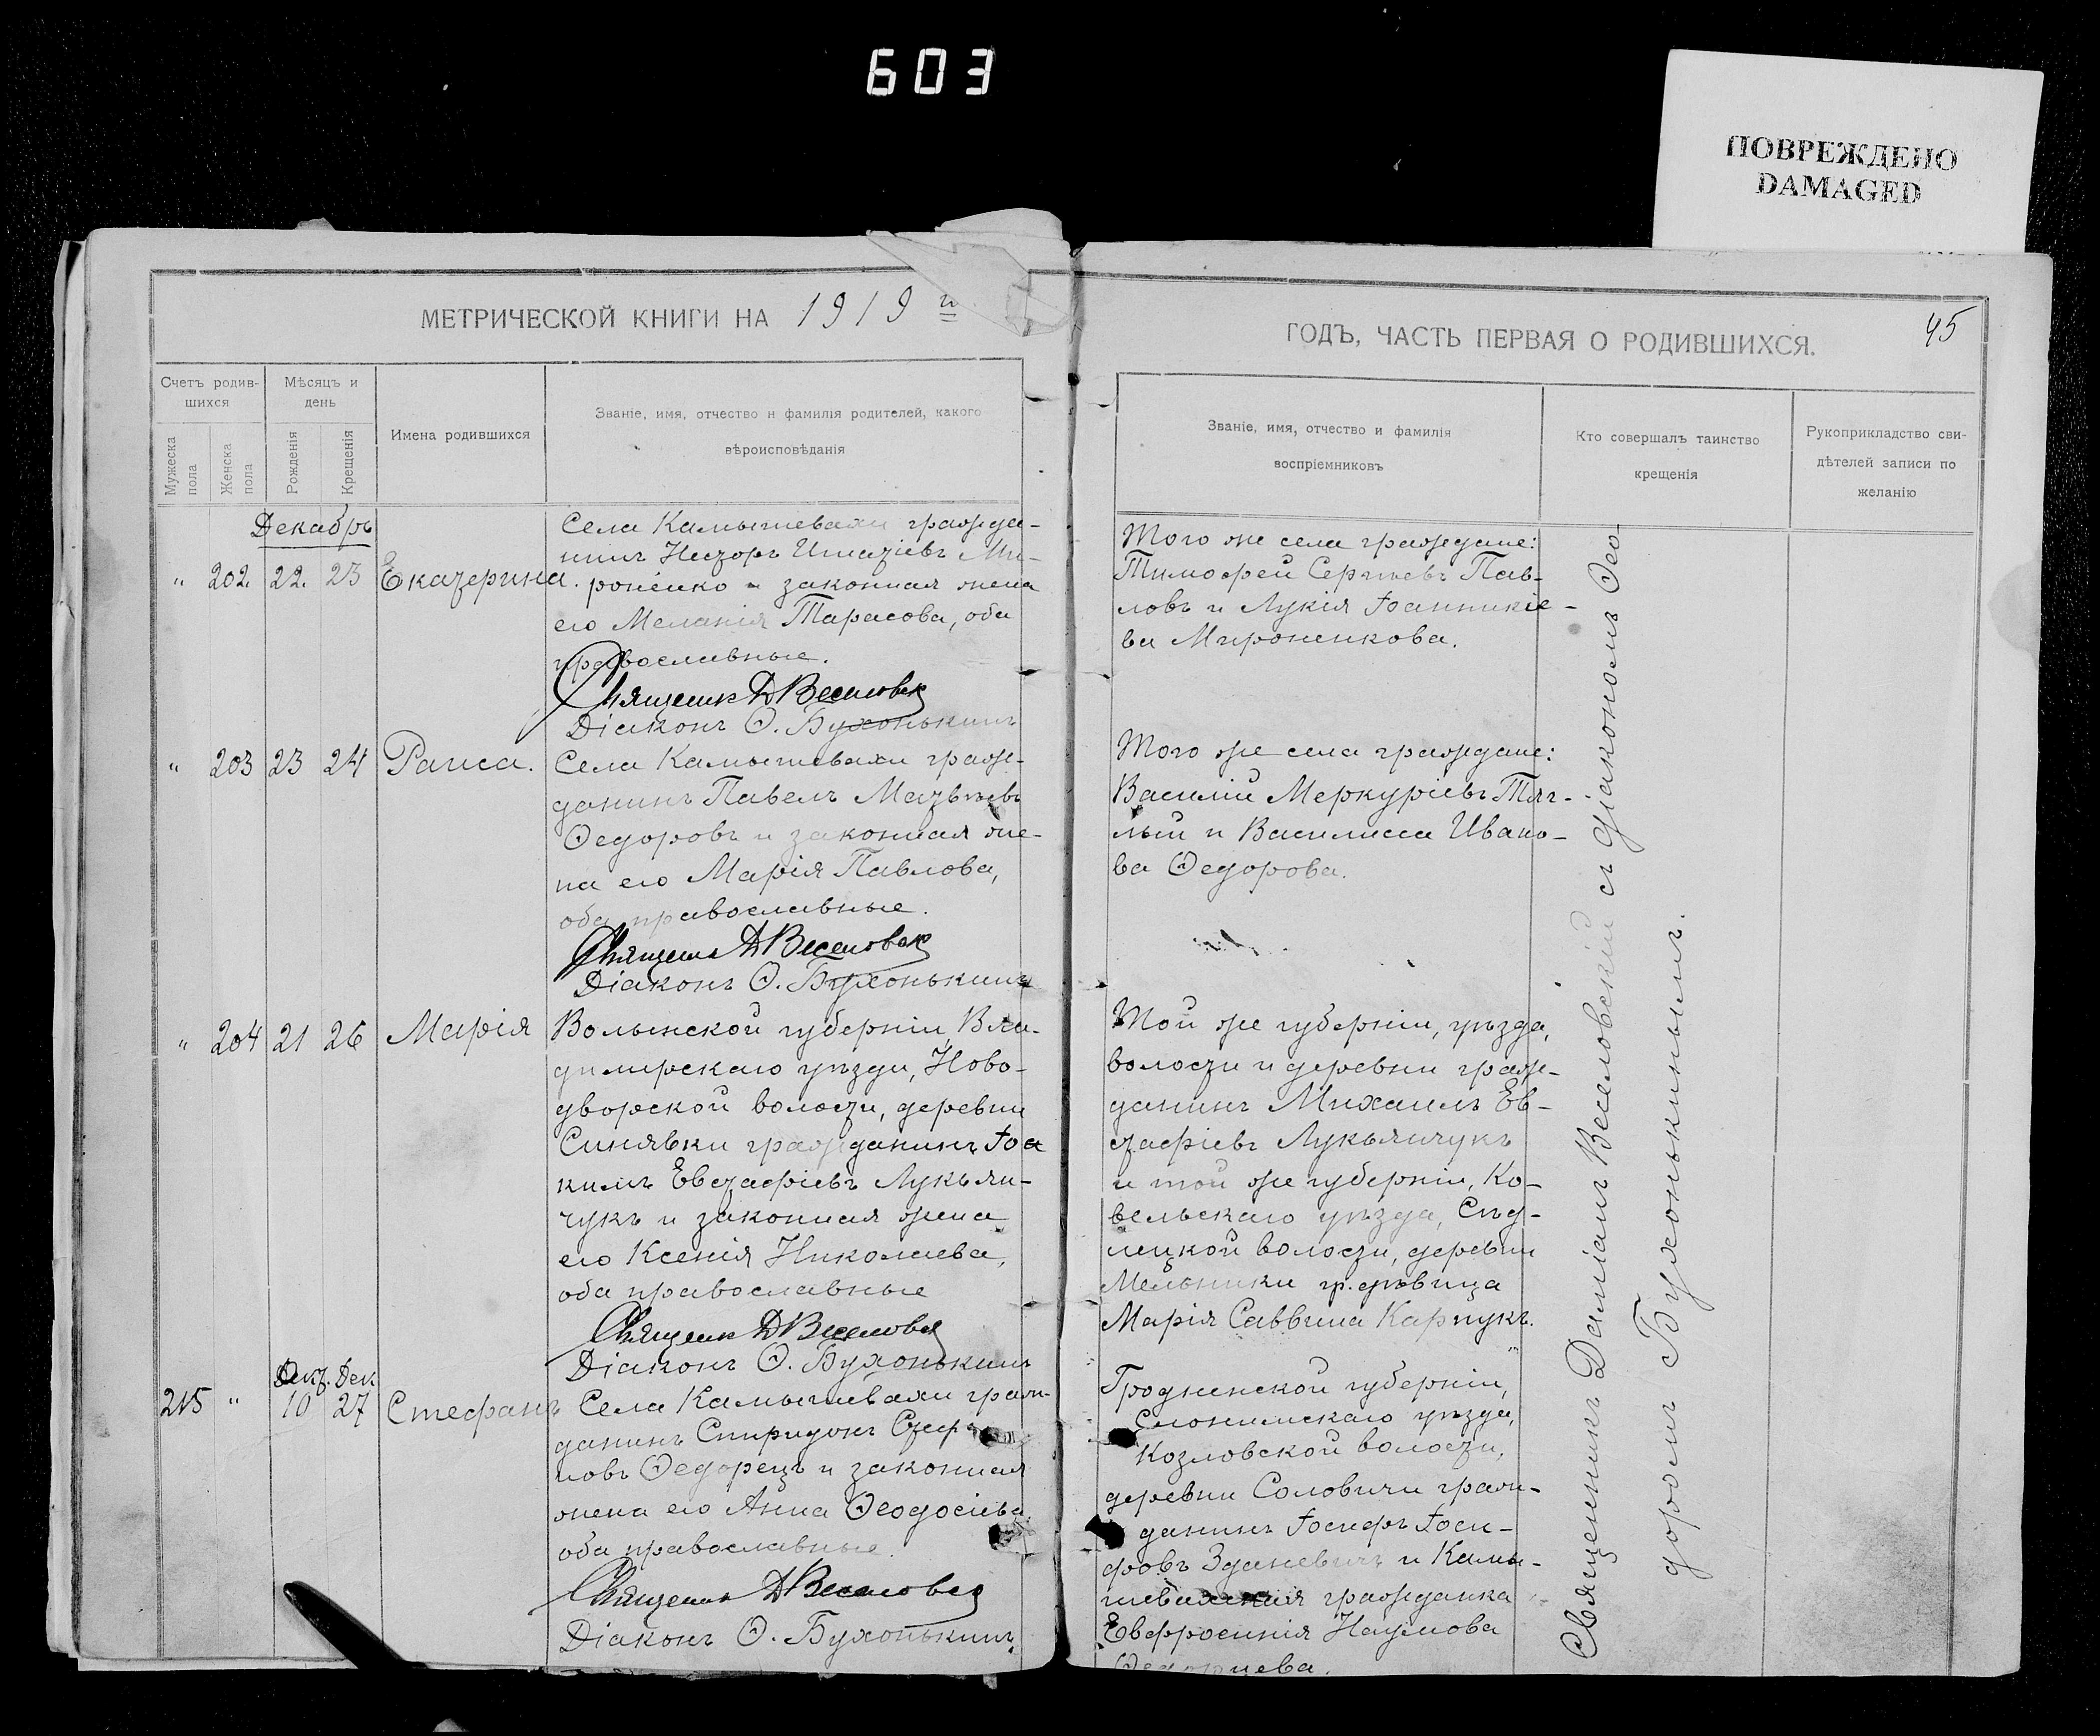 603
ПОВРЕЖДЕНО
DAMAGED
МЕТРИЧЕСКОЙ КНИГИ НА 1919 й
ГОДЪ, ЧАСТЬ ПЕРВАЯ О РОДИВШИХСЯ.
45
Счетъ родив-
шихся
Мужеска
пола
Женска
пола
Мѣсяцъ и
день
Рожденія
Крещенія
Имена родившихся
Званіе, имя, отчество и фамилія родителей, какого
вѣроисповѣданія
Званіе, имя, отчество и фамилія
воспріемниковъ
Кто совершалъ таинство
крещенія
Рукоприкладство сви-
дѣтелей записи по
желанію
Декабрь
" 202. 22. 23 Екатерина.
Села Камышевахи гражда-
нинъ Несторъ Игнатіевъ Ми-
роненко и законная жена
его Меланія Тарасова, оба
православные.
Священник Д Веселовск
Діаконъ Ѳ. Бухонькинъ
Того же села граждане:
Тимофей Сергѣевъ Пав-
ловъ и Лукія Іоанникіе-
ва Мироненкова.
" 203 23 24 Раиса.
Села Камышевахи граж-
данинъ Павелъ Матвѣевъ
Ѳедоровъ и законная же-
на его Марія Павлова,
оба православные.
Священ Д Веселовск
Діаконъ Ѳ. Бухонькинъ
Того же села граждане:
Василій Меркуріевъ Тяг-
лый и Василиса Ивано-
ва Ѳедорова.
" 204 21 26 Марія
Волынской губерніи, Вла-
димирскаго уѣзда, Ново-
дворской волости, деревни
Синявки гражданинъ Іоа
кимъ Евстафіевъ Лукьян-
чукъ и законная жена
его Ксенія Николаева,
оба православные
Священник Д Веселовск
Діаконъ Ѳ. Бухонькинъ
Той же губерніи, уѣзда,
волости и деревни граж-
данинъ Михаилъ Ев-
стафіевъ Лукьянчукъ
и той же губерніи, Ко-
вельскаго уѣзда, Сѣд-
лицкой волости, деревни
Мельники гр. дѣвица
Марія Саввина Карпукъ.
Окт. Дек
215 " 10 27 Стефанъ
Села Камышевахи граж-
данинъ Спиридонъ Стеф
новъ Ѳедорецъ и законная
жена его Анна Ѳеодосіева
оба православные.
Священник Д Веселовск
Діаконъ Ѳ. Бухонькинъ
Гродненской губерніи,
Слонимскаго уѣзда,
Козловской волости,
деревни Соловичи граж-
данинъ Іосифъ Іоси-
фовъ Зданевичъ и Камы-
шевахская гражданка
Евфросинія Наумова
Ѳедорцева.
Священникъ Даміанъ Веселовскій съ діакономъ Ѳео-
доромъ Бухонькинымъ.